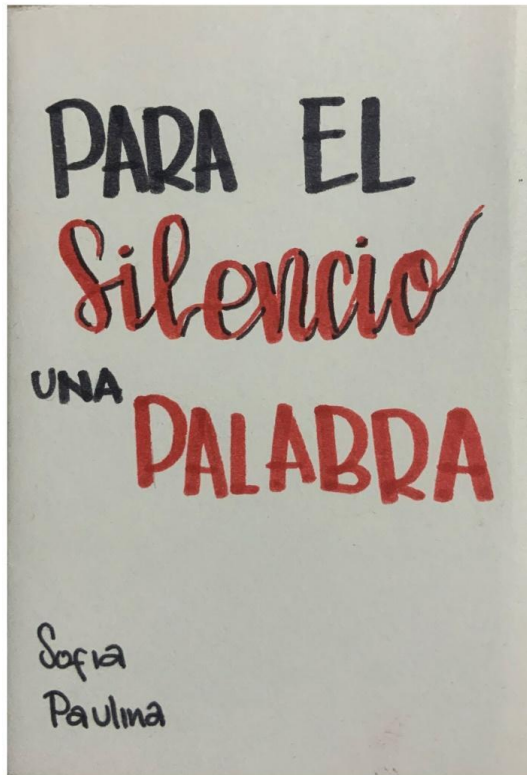 PARA EL
Silencio
UNA
PALABRA
Sofia
Paulina